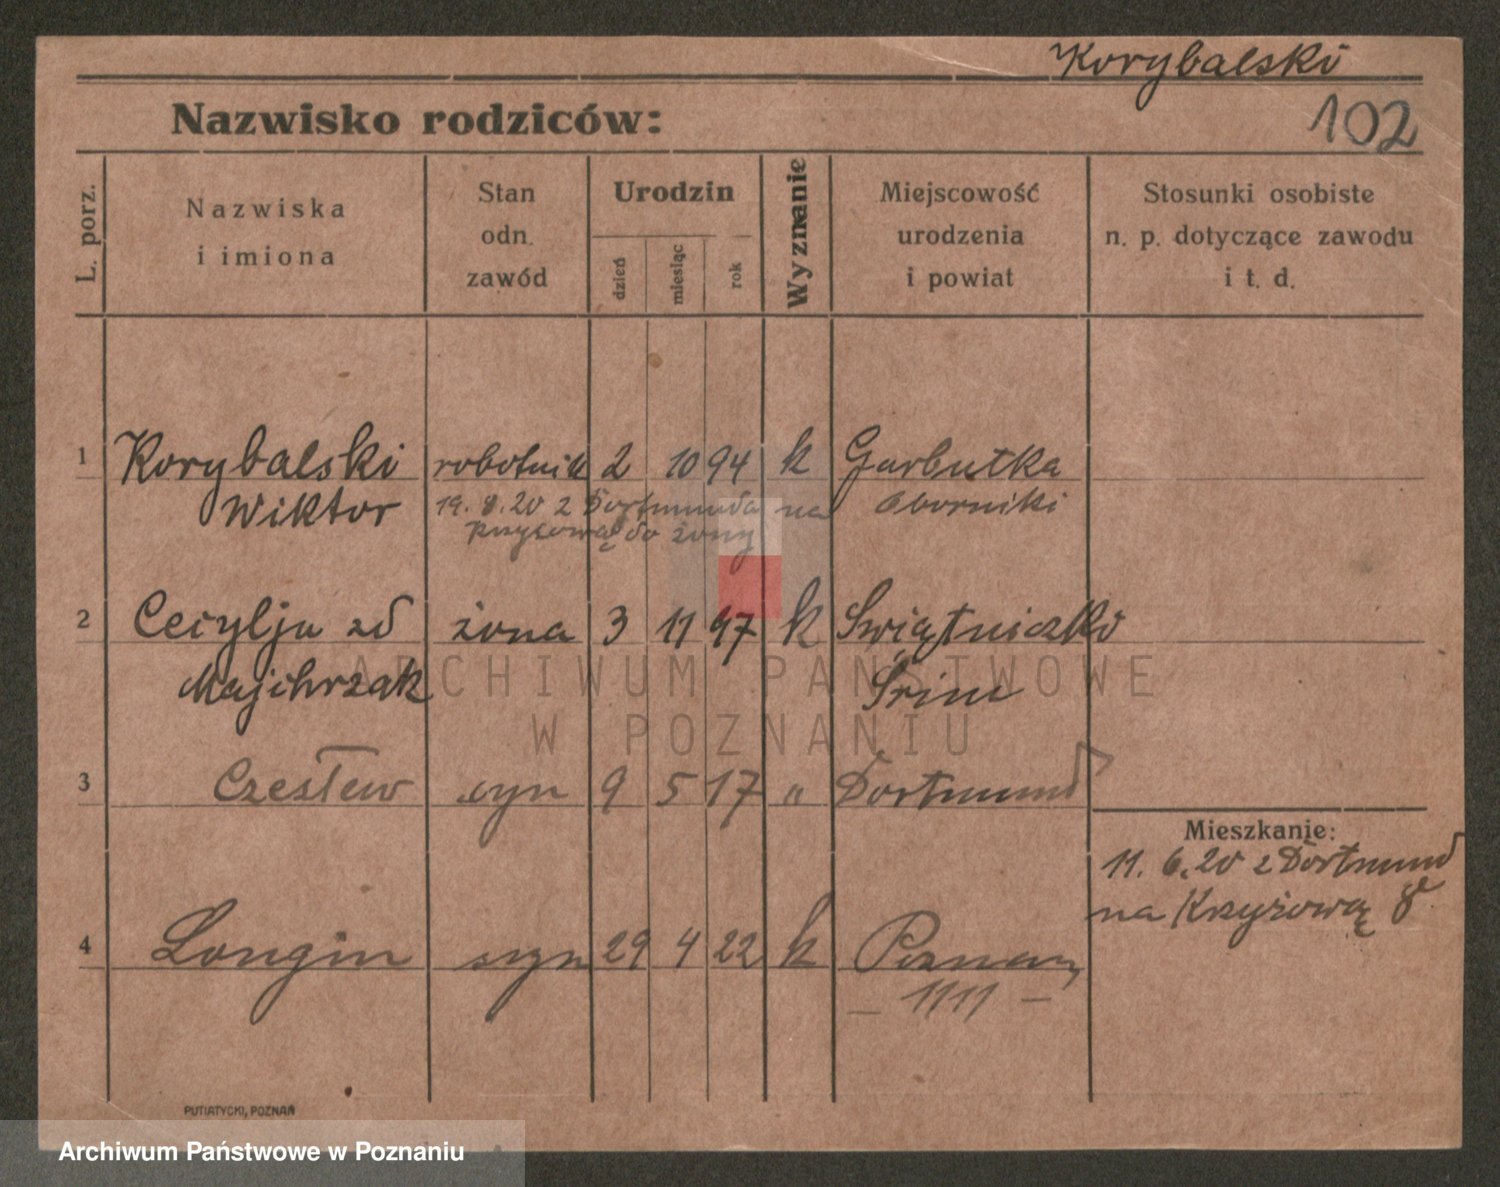 Korybalski
Nazwisko rodziców:
102
L. porz.
Nazwiska
i imiona
Stan
odn.
zawód
Urodzin
dzień
miesiąc
rok
Wyznanie
Miejscowość
urodzenia
i powiat
Stosunki osobiste
n. p. dotyczące zawodu
i t. d.
1 Korybalski robotnik 2 10 94 k Garbatka
Wiktor 19. 8. 20 z Dortmunda na Oborniki
Krzyżową do żony
2 Cecylja zd żona 3 11 97 k Świątniczki
Majchrzak Śrim
ARCHIWUM PAŃSTWOWE
W POZNANIU
3 Czesław syn 9 5 17 " Dortmund
Mieszkanie:
11. 6. 20 z Dortmund
na Krzyżową 8
4 Longin syn 29 4 22 k Poznań
— 1111 —
PUTIATYCKI, POZNAŃ
Archiwum Państwowe w Poznaniu